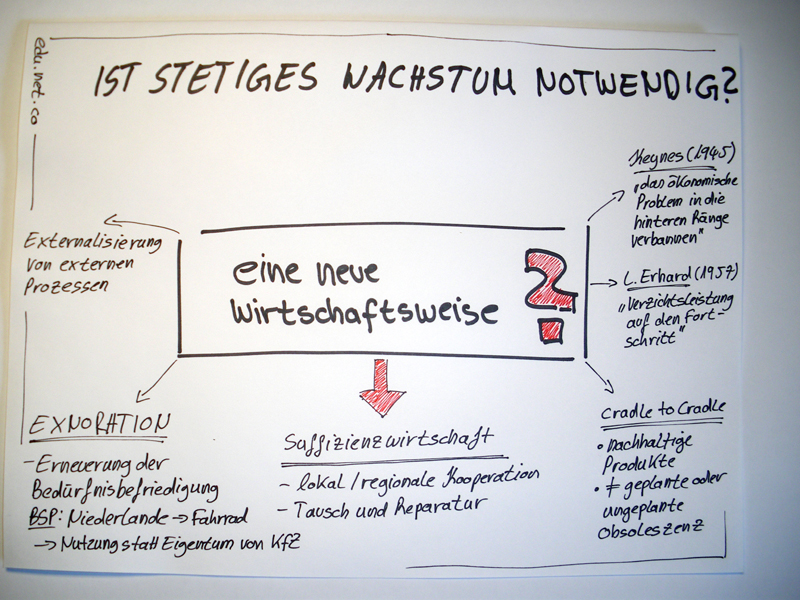 edu.net.co
IST STETIGES WACHSTUM NOTWENDIG?
Externalisierung
von externen
Prozessen
eine neue
wirtschaftsweise ?
Keynes (1945)
"das ökonomische
Problem in die
hinteren Ränge
verbannen"
L. Erhard (1957)
"Verzichtsleistung
auf den Fort-
schritt"
EXNORATION
- Erneuerung der
Bedürfnisbefriedigung
BSP: Niederlande → Fahrrad
→ Nutzung statt Eigentum von KfZ
Suffizienzwirtschaft
- lokal / regionale Kooperation
- Tausch und Reparatur
Cradle to Cradle
• nachhaltige
Produkte
• ≠ geplante oder
ungeplante
Obsoleszenz